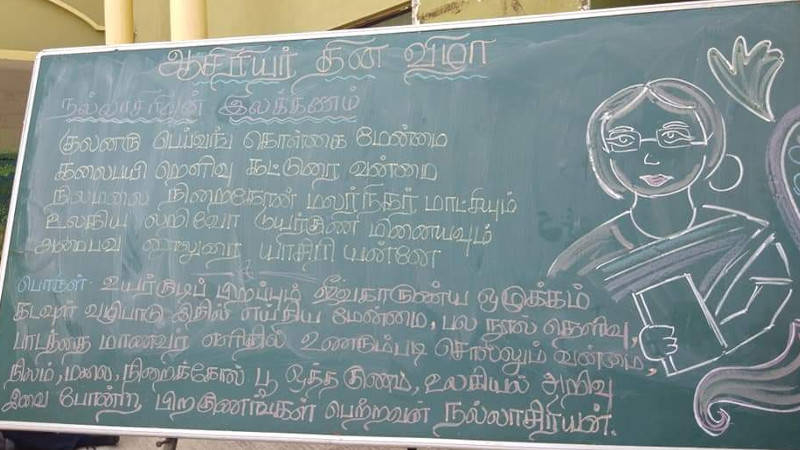 ஆசிரியர் தின விழா
நல்லாசிரியன் இலக்கணம்
குலனரு பெய்வங் கொள்கை மேன்மை
கலைபயி றெளிவு கட்டுரை வன்மை
நிலமலை நிறைகோண் மலர்நிகர் மாட்சியும்
உலகிய லறிவோ டுயர்குண மினையவும்
அமைபவ னூலுரை யாசிரி யன்னே
பொருள்- உயர்குடிப் பிறப்பும் ஜீவகாருண்ய ஒழுக்கம்
கடவுள் வழிபாடு இதில் எய்சிய மேன்மை, பல நூல் தெளிவு,
பாடத்தை மாணவர் எளிதில் உணரும்படி சொல்லும் வன்மை,
நிலம், மலை, நிறைக்கோல் பூ ஒத்த குணம், உலகியல் அறிவு
இவை போன்ற பிற குணங்கள் பெற்றவன் நல்லாசிர்யன்.